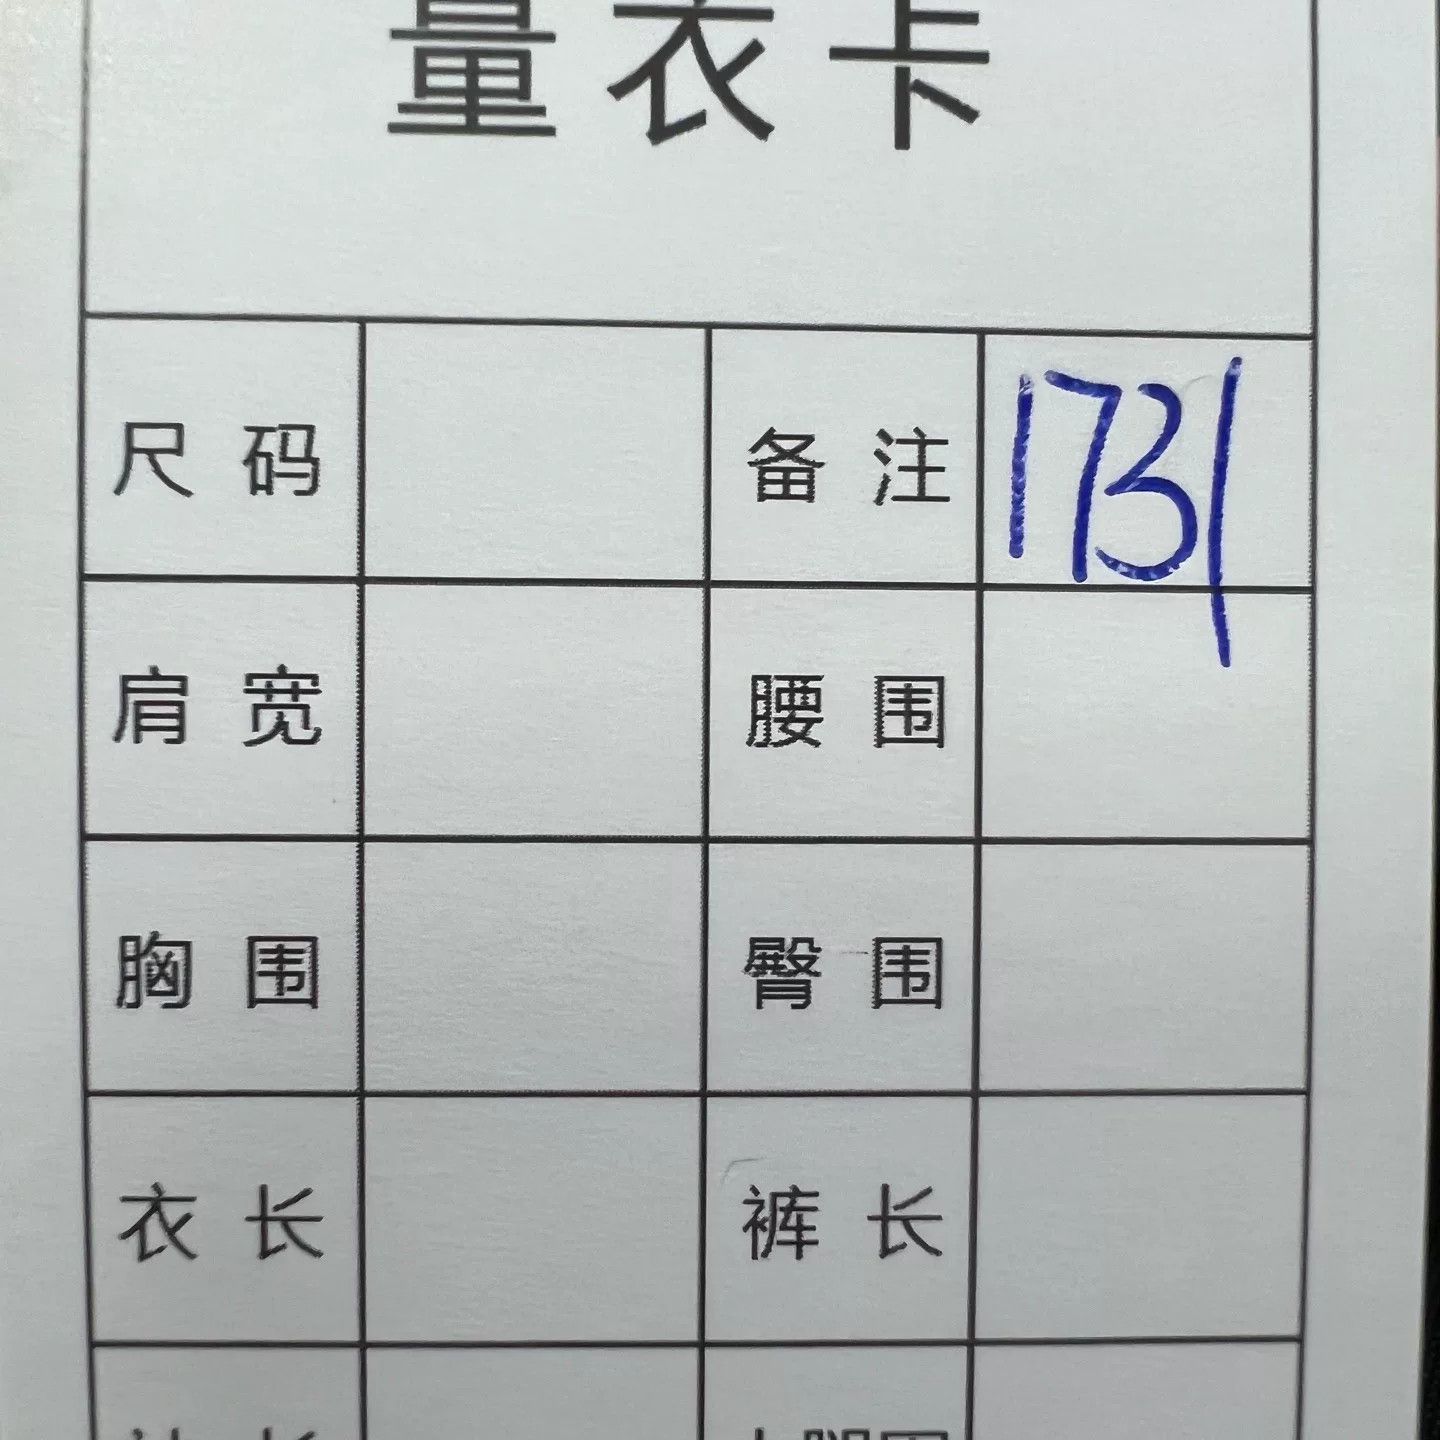 量衣卡
尺码 备注 1731
肩宽 腰围
胸围 臀围
衣长 裤长